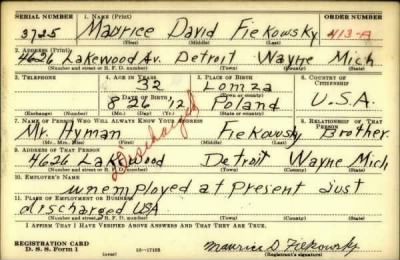 SERIAL NUMBER 1. NAME (Print) ORDER NUMBER
3725 Maurice David Fiekowsky 413-A
(First) (Middle) (Last)
2. ADDRESS (Print)
4626 Lakewood Av. Detroit Wayne Mich
(Number and street or R. F. D. number) (Town) (County) (State)
3. TELEPHONE 4. AGE IN YEARS 5. PLACE OF BIRTH 6. COUNTRY OF CITIZENSHIP
32 Lomza
DATE OF BIRTH (Town or county)
8 26 '12 Poland U.S.A.
(Exchange) (No.) (Mo.) (Day) (Yr.) (State or country)
Discharged
7. NAME OF PERSON WHO WILL ALWAYS KNOW YOUR ADDRESS 8. RELATIONSHIP OF THAT PERSON
Mr. Hyman Fiekowsky Brother
(Mr., Mrs., Miss) (First) (Middle) (Last)
9. ADDRESS OF THAT PERSON
4626 Lakewood Detroit Wayne Mich
(Number and street or R. F. D. number) (Town) (County) (State)
10. EMPLOYER'S NAME
unemployed at Present Just
11. PLACE OF EMPLOYMENT OR BUSINESS
discharged USA
(Number and street or R. F. D. number) (Town) (County) (State)
I AFFIRM THAT I HAVE VERIFIED ABOVE ANSWERS AND THAT THEY ARE TRUE.
REGISTRATION CARD
D. S. S. Form 1 16-17105 Maurice D. Fiekowsky
(Registrant's signature)